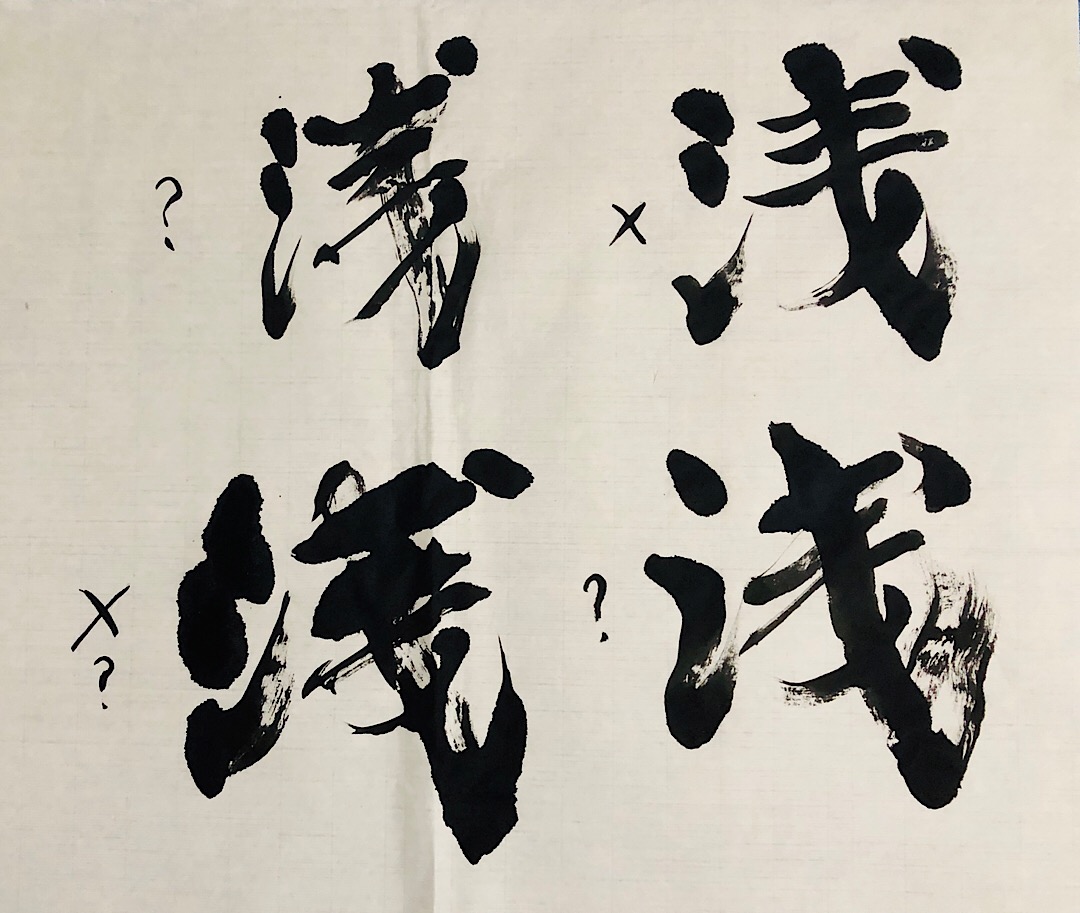 ? 浅 × 浅
×? 浅 ? 浅